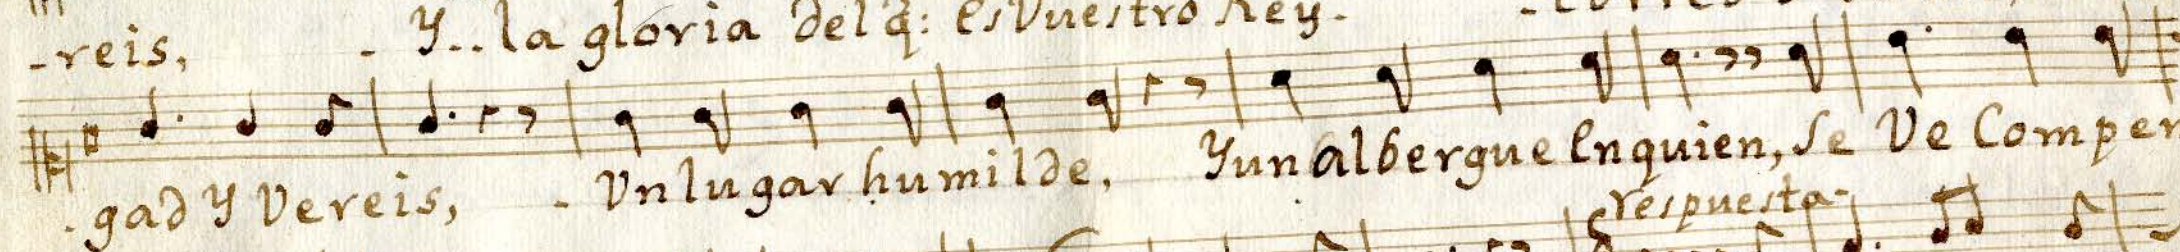 -reis, - Y.. la gloria del q̃: es Vuestro Rey. -
-gad Y Vereis, - Vn lugar humilde, Y un albergue en quien, se Ve Compen
respuesta-